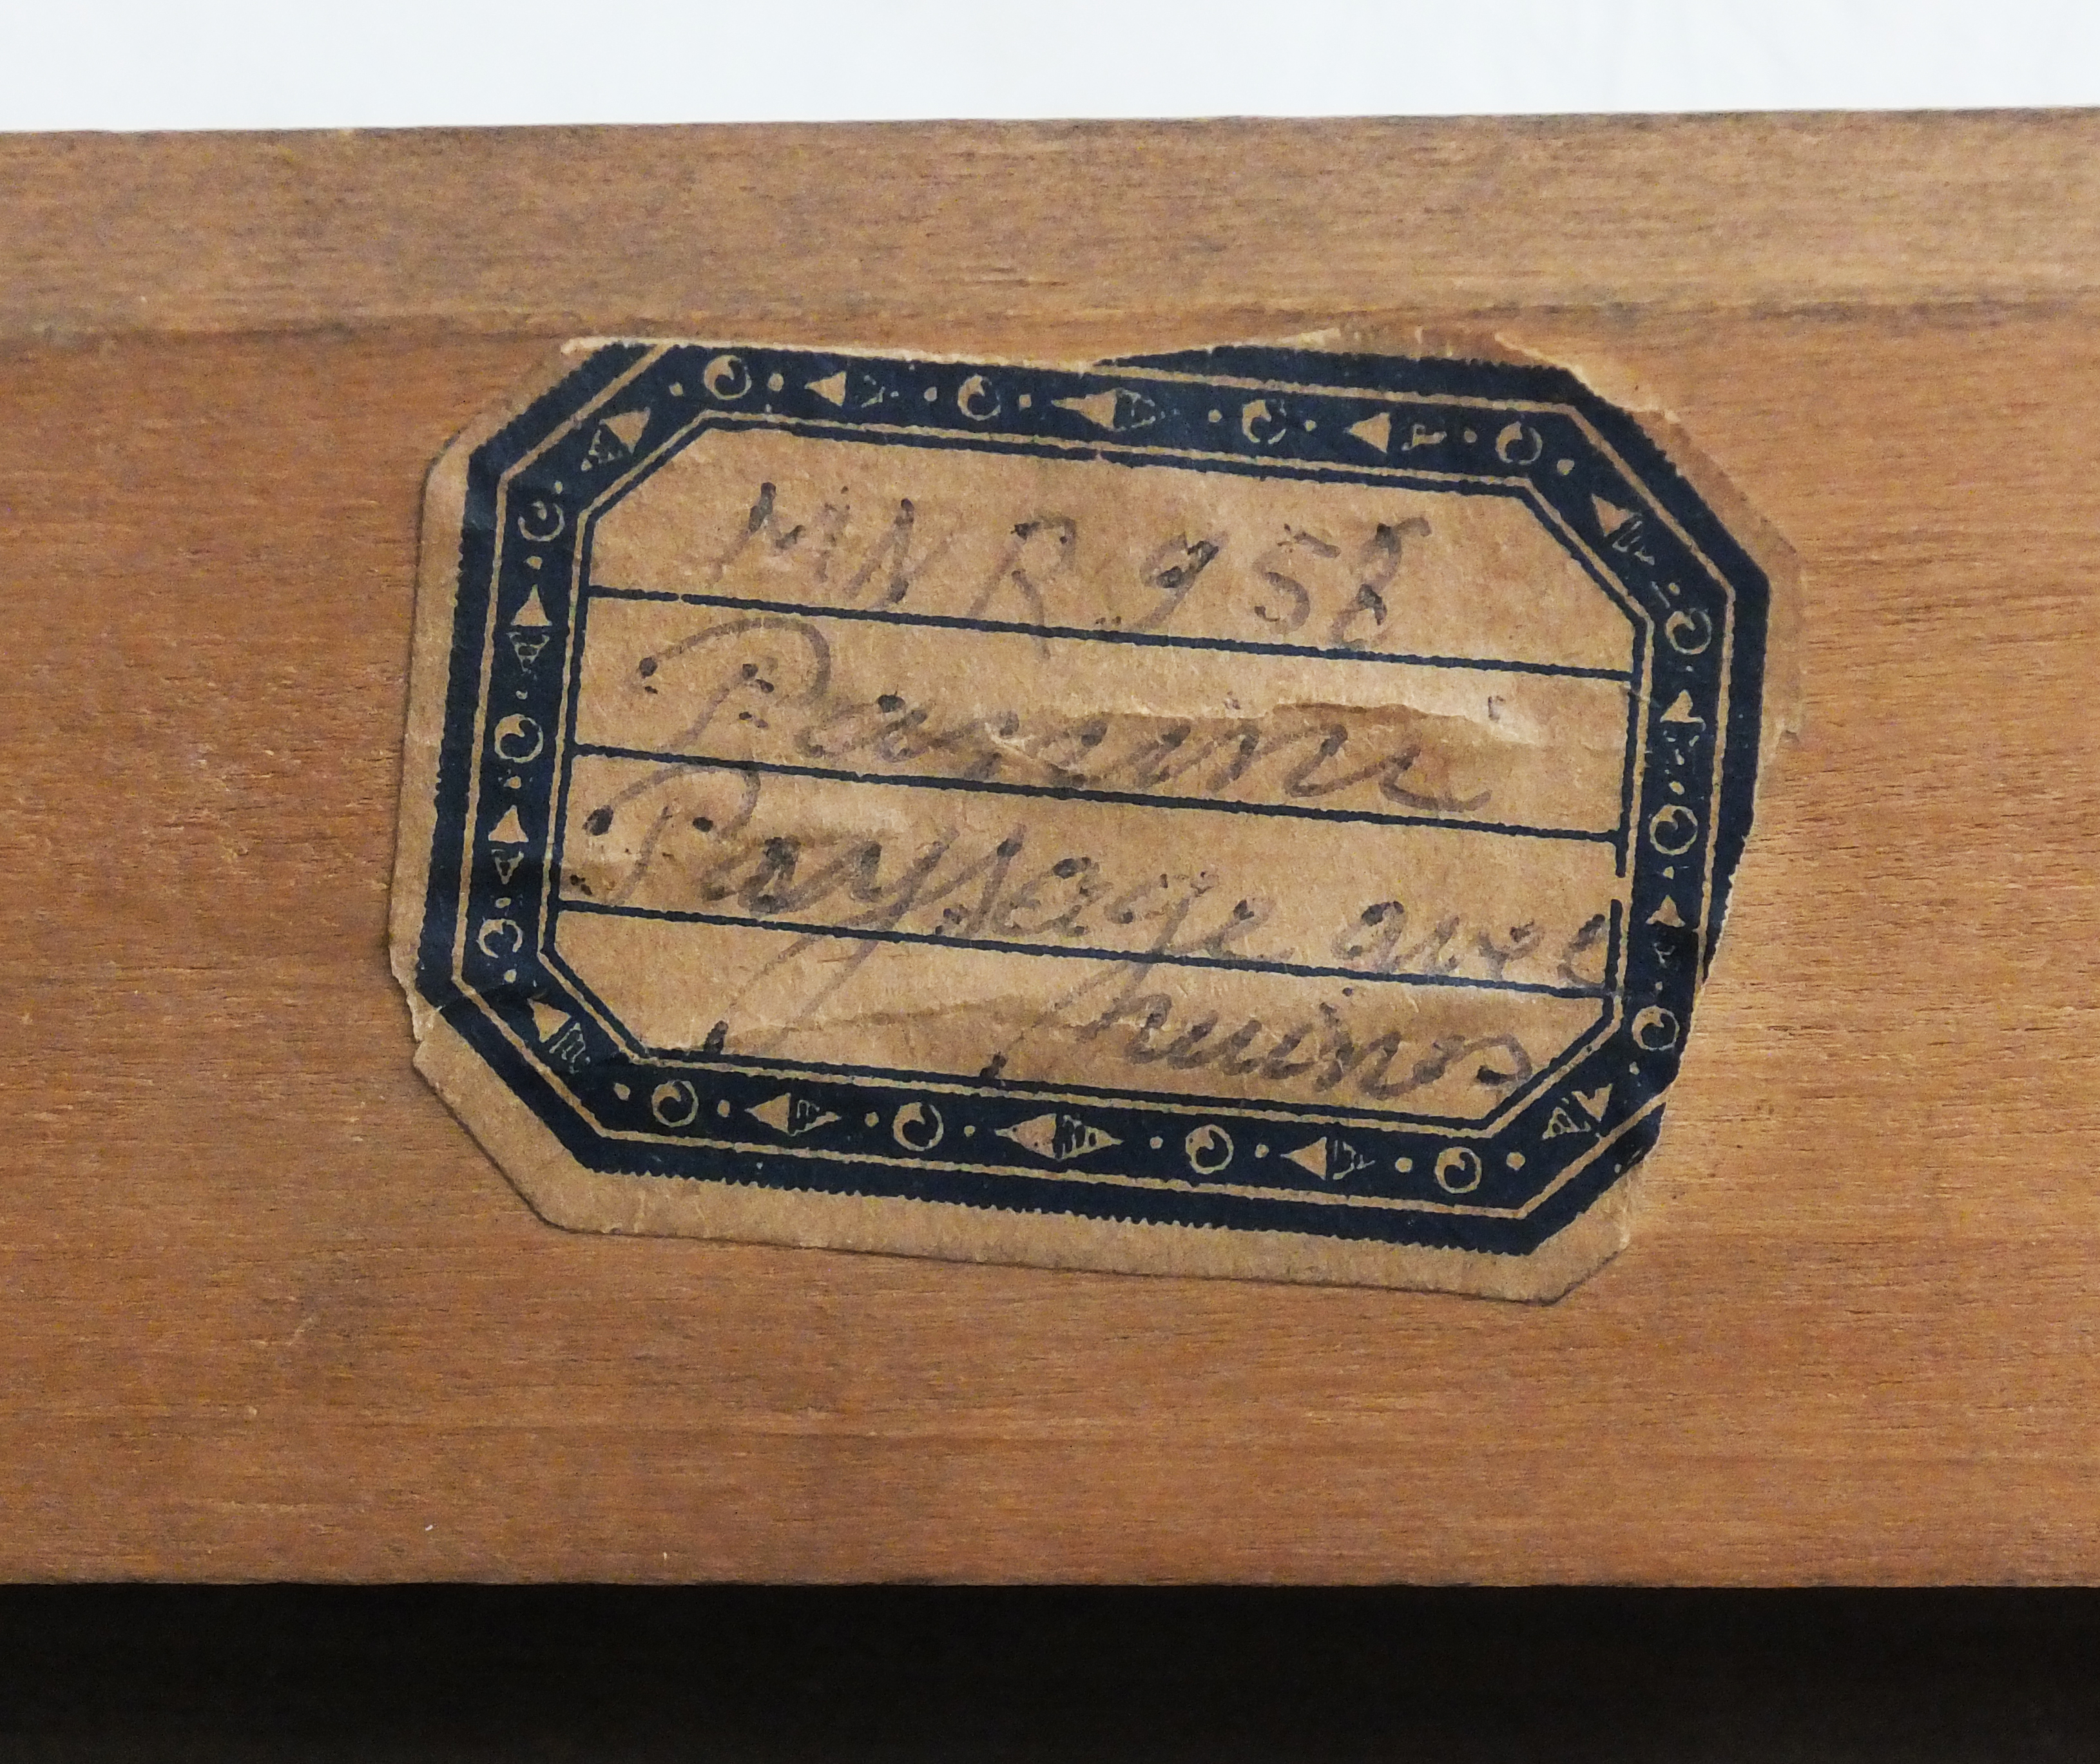 MNR 958
Panini
Paysage avec
ruines